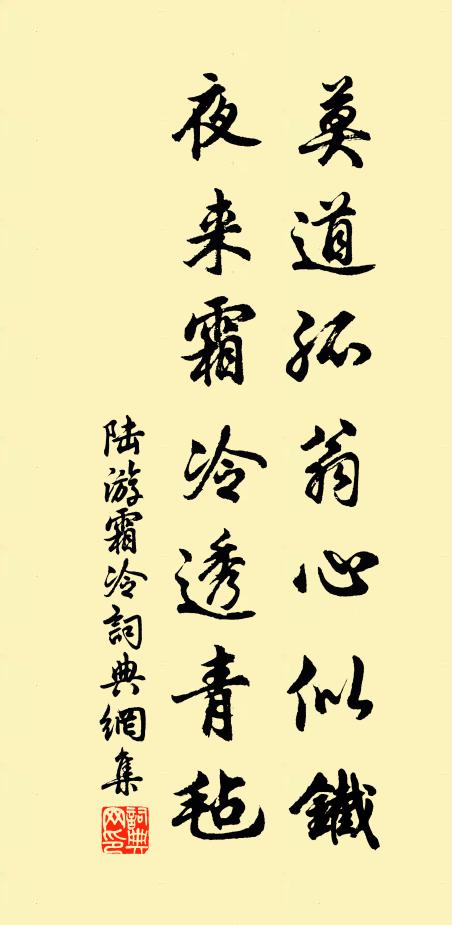 莫道孤翁心似鐵
夜来霜冷透青毡
陆游霜冷詞典網集
詞典网印